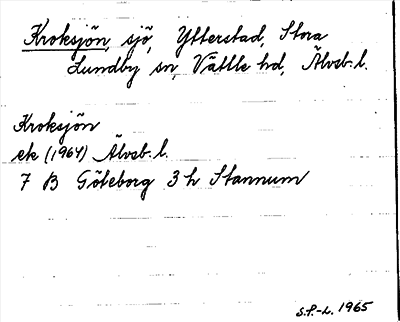 Kroksjön, sjö, Ytterstad, Stora
Lundby sn, Vättle hd, Älvsb. l.
Kroksjön
ek (1964) Älvsb. l.
7 B Göteborg 3 h Stannum
S.P.-L. 1965